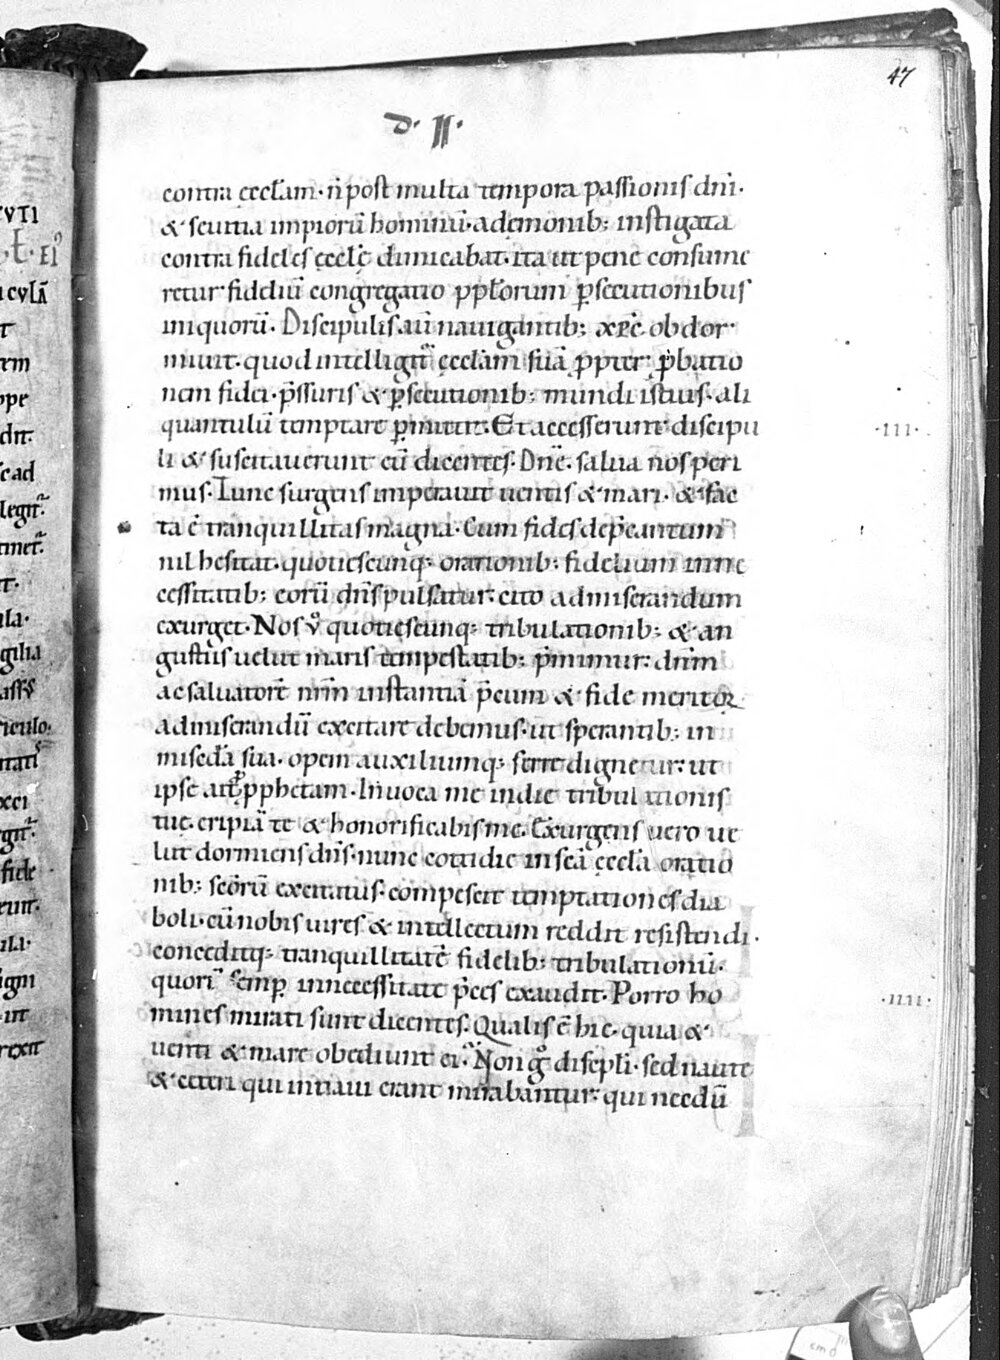 47
d. II.
contra ęccl̄am. n̄ post multa tempora passionis dn̄i.
& seuitia impiorū hominū. a dęmonib; instigata
contra fideles ęcclę̄ dimicabat. ita ut pene consume
retur fideliū congregatio pp̄lorum p̄secutionibus
iniquorū. Discipulis aū nauigantib; xp̄c obdor
miuit. quod intelligit̄ ęccl̄am suā ꝓpter ꝓbatio
nem fidei. p̄ssuris & p̄secutionib; mundi istius. ali
quantulū temptare p̄mittit. Et accesserunt discipu
.III.
li & suscitauerunt eū dicentes. Dn̄e. salua nos peri
mus. Tunc surgens imperauit uentis & mari. & fac
ta ē tranquillitas magna. Cum fides dep̄cantum
nil hesitat. quotiescunq; orationib; fidelium in ne
cessitatib; eorū dn̄s pulsatur. cito ad miserandum
exurget. Nos v̊ quotiescunq; tribulationib; & an
gustiis uelut maris tempestatib; p̄mimur. dn̄m
ac saluatorē nr̄m instantiā p̄cum & fide meritoꝝ
ad miserandū excitare debemus. ut sperantib; in
miscd̄a sua. opem auxiliumq; ferre dignetur. ut
ipse ait p̱ ꝓphetam. Inuoca me in die tribulationis
tuę. eripiā te & honorificabis me. Exurgens uero ue
lut dormiens dn̄s. nunc cotidie in scā ęccl̄a oratio
nib; scōrū excitatus. compescit temptationes dia
boli. cū nobis uires & intellectum reddit resistendi.
conceditq; tranquillitatē fidelib; tribulationū.
quorū semp̱ in necessitate p̄ces exaudit. Porro ho
.IIII.
mines mirati sunt dicentes. Qualis ē hic. quia &
uenti & mare obediunt ei. Non g̊ discpl̄i. sed nautę
& ceteri qui in naui erant mirabantur. qui necdū